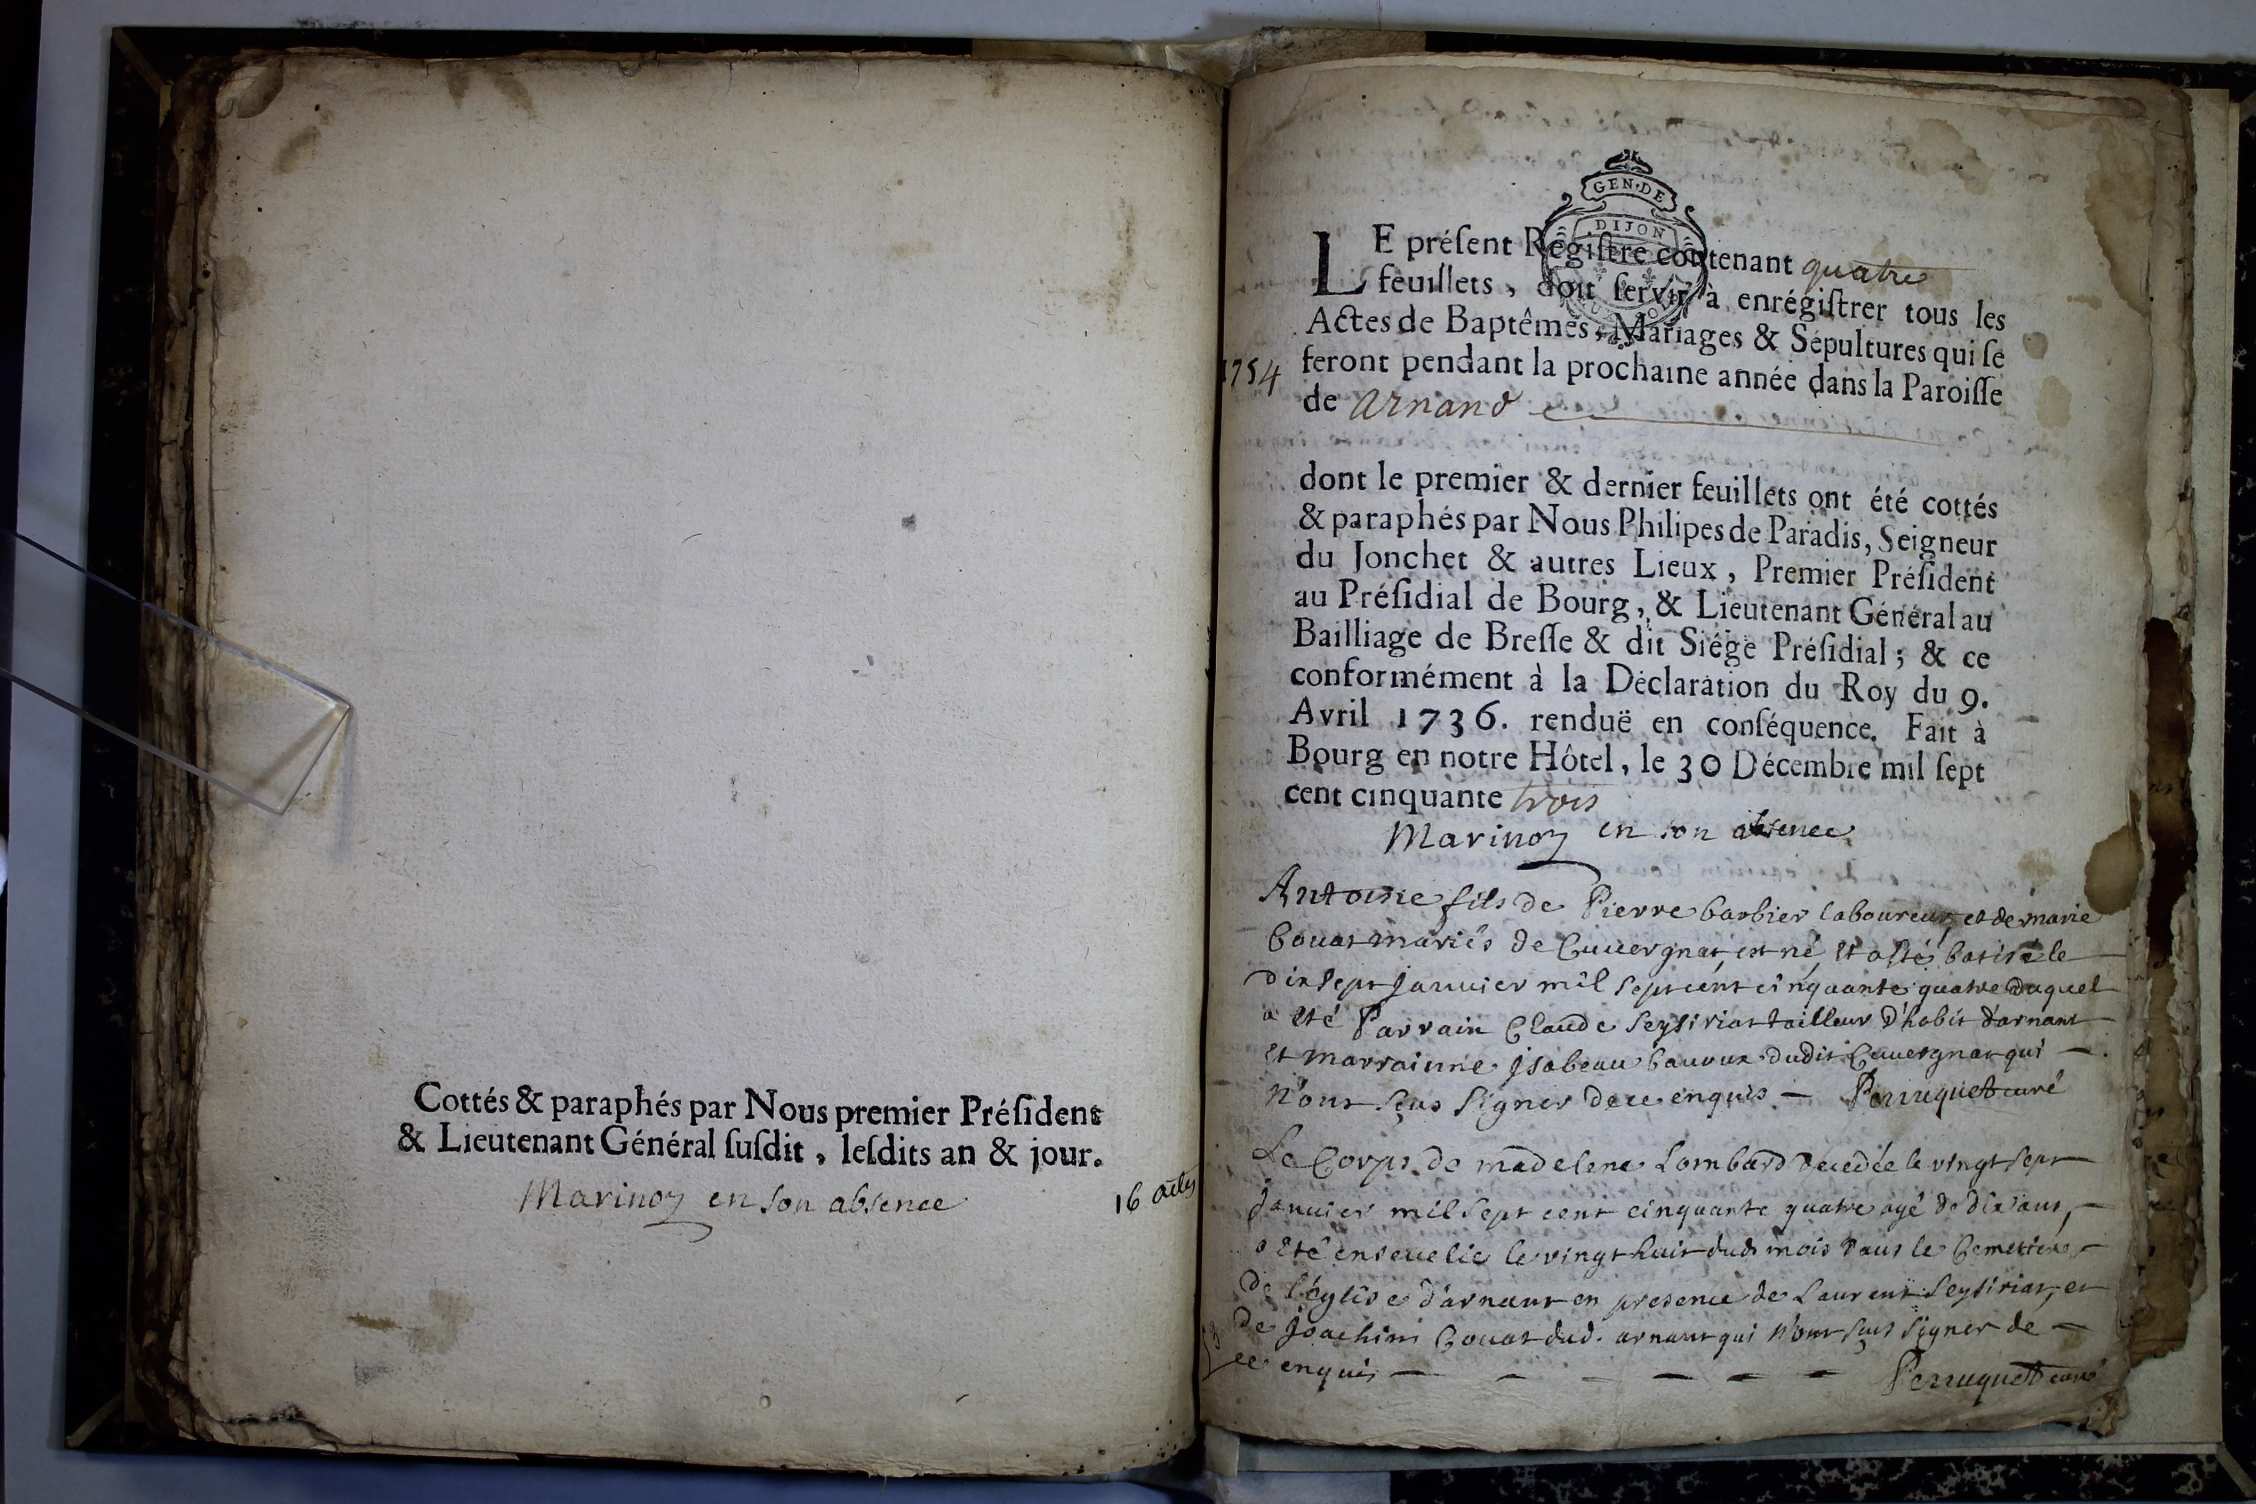 Cottés & paraphés par Nous premier Préſident
& Lieutenant Général ſuſdit, leſdits an & jour.
en son absence
16 actes
GEN·DE
DIJON
LE préſent Régiſtre contenant quatre
feuillets, doit ſervir à enrégiſtrer tous les
Actes de Baptêmes, Mariages & Sépultures qui ſe
1754
feront pendant la prochaine année dans la Paroiſſe
de arnand
dont le premier & dernier feuillets ont été cottés
& paraphés par Nous Philipes de Paradis, Seigneur
du Jonchet & autres Lieux, Premier Préſident
au Préſidial de Bourg, & Lieutenant Général au
Bailliage de Breſſe & dit Siége Préſidial; & ce
conformément à la Déclaration du Roy du 9.
Avril 1736. renduë en conſéquence. Fait à
Bourg en notre Hôtel, le 30 Décembre mil ſept
cent cinquante trois
en son absence
Antoine fils de Pierre barbier laboureur et de marie
bouat mariés de Cuvergnat est né et a été batisé le
dix sept janvier mil sept cent cinquante quatre duquel
a été Parrain Claude Seysiriat tailleur d'habit d'arnant
et marrainne jsabeau dudit Cuvergnat qui
n'ont sçus signer de ce enquis — Perruquet curé
Le Corps de madelene Lombard decedée le vingt sept
janvier mil sept cent cinquante quatre agé de dix ans,
a été ensevelie le vingt huit dud. mois dans le Cemettiere
de l'église d'arnant en presence de Laurent Seysiriat, et
de joachim bouat dud. arnant qui n'ont sçus signer de
ce enquis — Perruquet curé